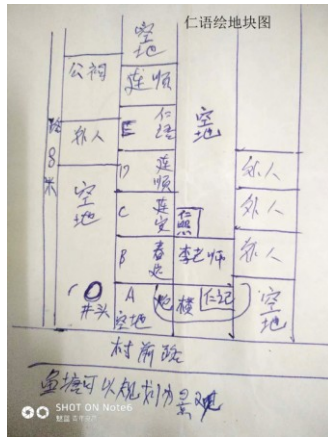 仁语绘地块图
空地
公祠
连顺
外人
E 仁语
空地
路8米
D 连顺
外人
空地
C 连安
仁熙
外人
B 春
李老师
外人
井头
A 空地
炮楼
仁记
空地
村前路
鱼塘可以规划为景观
SHOT ON Note6
魅蓝